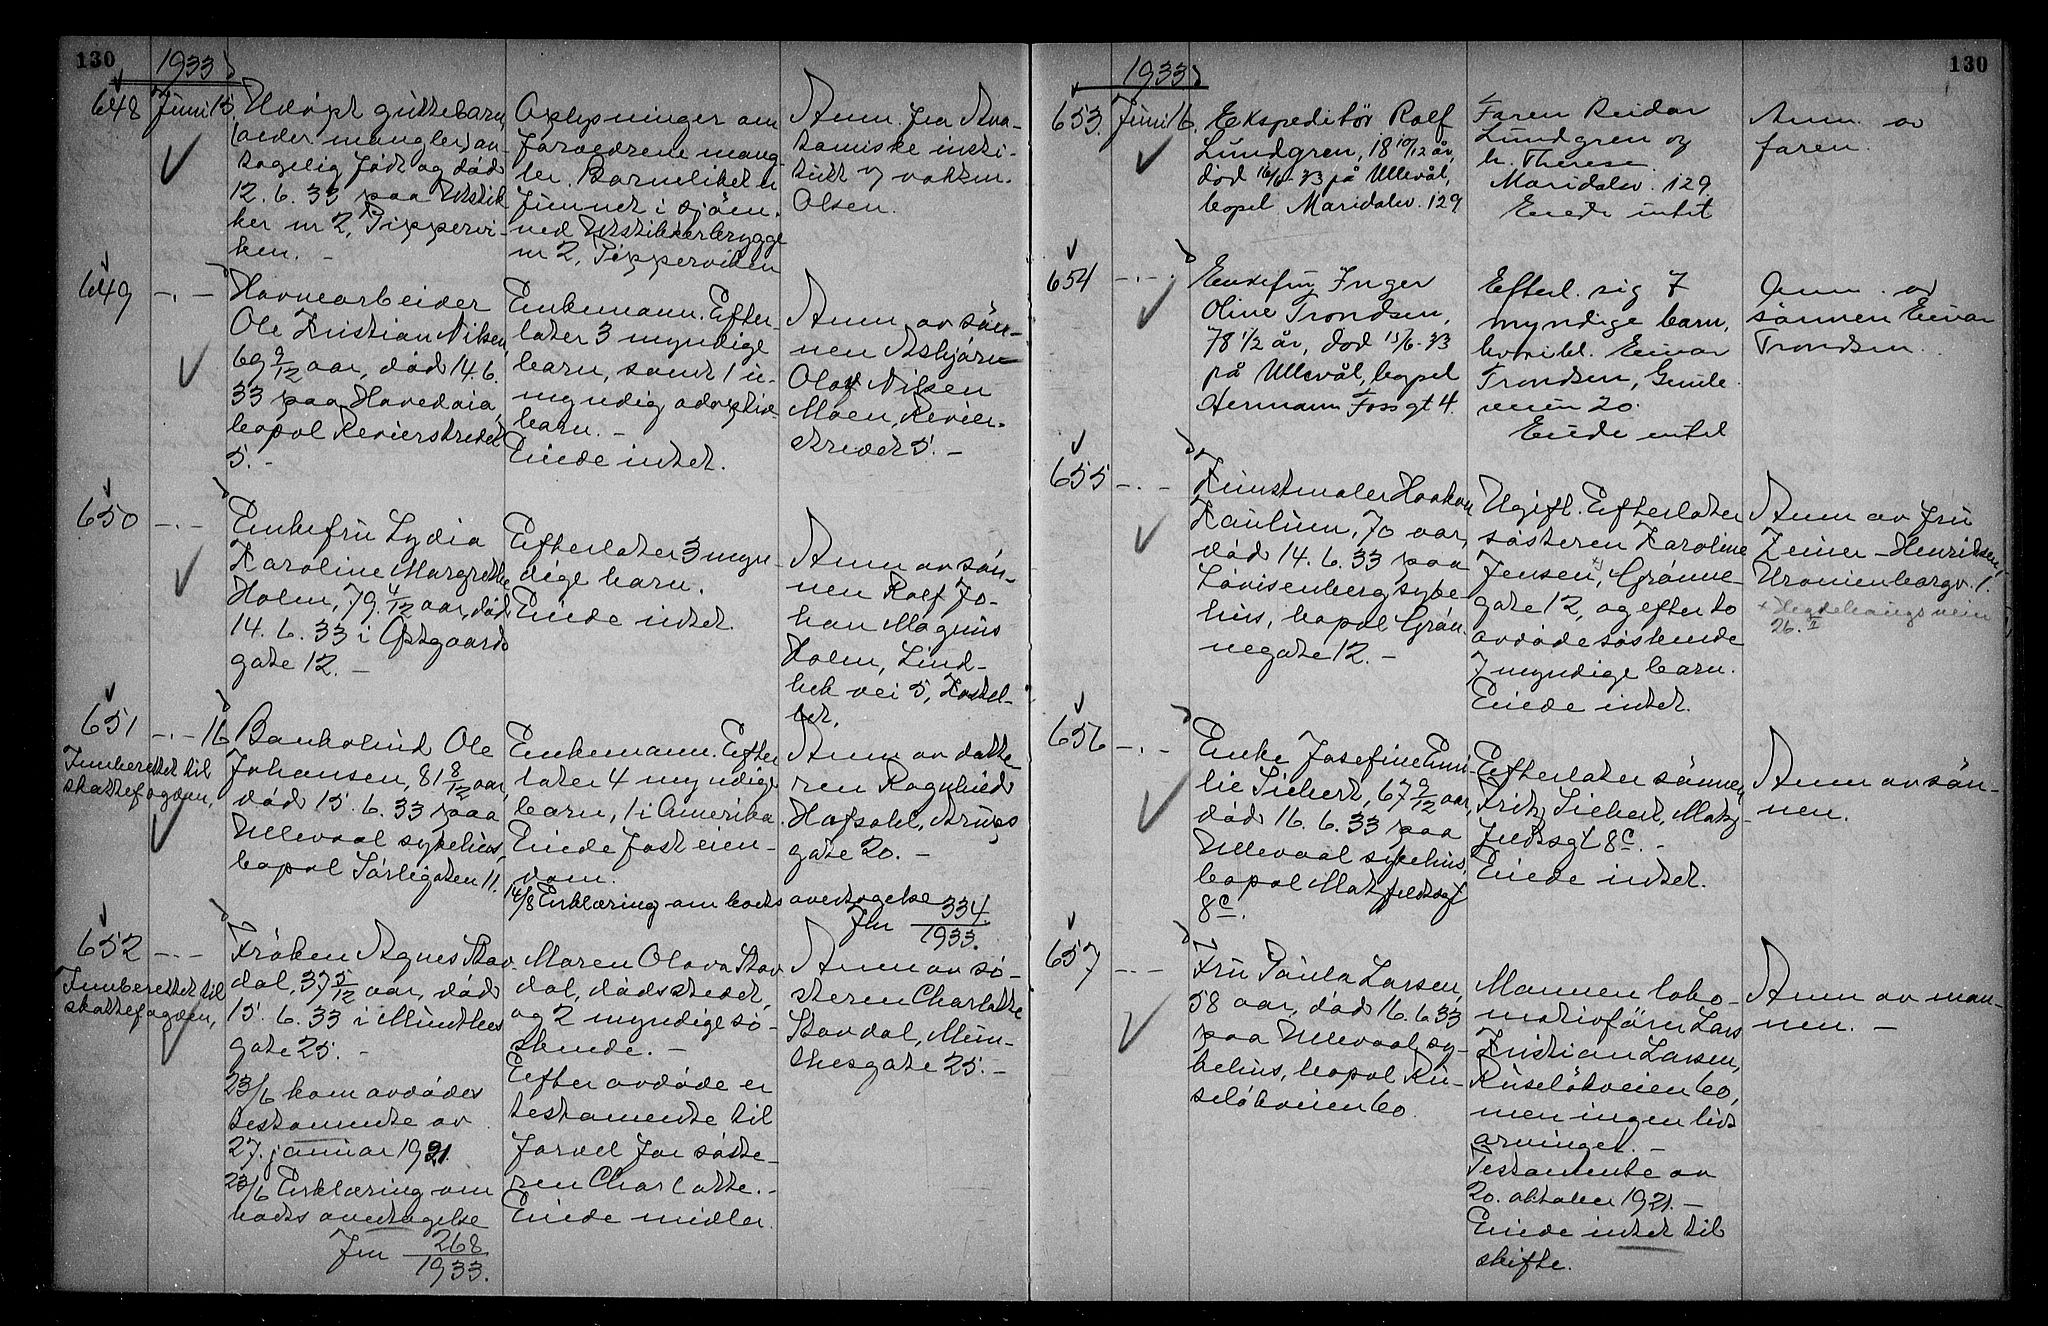 130
1933
648 Juni 15. Udøpt guttebarn
(alder mangler) an-
tagelig født og død
12. 6. 33 paa Utstik
ker nr 2, Pippervi-
ken. -
Oplysninger om
forældrene mang-
ler. Barneliket er
funnet i sjøen
ved Utstikkerbrygge
nr 2, Piperviken
Anm. fra Ana-
tomiske insti-
tutt v vaktm.
Olsen.
649 -.- Havnearbeider
Ole Kristian Nilsen,
69 9/12 aar, død 14. 6.
33 paa Hovedøia,
bopæl Revierstredet
5. -
Enkemann. Efter-
later 3 myndige
barn, samt 1 u-
myndig adoptiv
barn. -
Eiede intet.
Anm. av søn-
nen Asbjørn
Olaf Nilsen
Moen, Revier-
stredet 5. -
650 -.- Enkefru Lydia
Karoline Margrethe
Holm, 79 4/12 aar, død
14. 6. 33 i Optgaards
gate 12. -
Efterlater 3 myn-
dige barn.
Eiede intet.
Anm av søn-
nen Rolf Jo-
han Magnus
Holm, Lind-
bek vei 5,
651 -.- 16 Bankobud Ole
Johansen, 81 8/12 aar,
død 15. 6. 33 paa
Ullevaal sykehus,
bopæl Sørligaten 11.
Innberettet til
skattefogden,
Enkemann. Efter
later 4 myndige
barn, 1 i Amerika.
Eiede fast eien-
dom.
14/8 Erklæring om boets overtagelse
Jnr 334
1933.
Anm av datte
ren Ragnhild
Hofdahl,
gate 20. -
652 -.- Frøken Agnes Stav
dal, 37 5/12 aar, død
15. 6. 33 i Munthes
gate 25. -
Innberettet til
skattefogden,
23/6 kom avdødes
testamente av
27. januar 1921.
23/6 Erklæring om
boets overtagelse
Jnr 268
1933.
Maren Olava Stav
dal, dødsstedet,
og 2 myndige sø-
skende. -
Efter avdøde er
testamente til
fordel for søste-
ren Charlotte. -
Eiede midler.
Anm av sø-
steren Charlotte
Stavdal, Mun-
thesgate 25. -
130
1933
653. Juni 16. Ekspeditør Rolf
Lundgren, 18 10/12 år,
død 16/6-33 på Ullevål,
bopel Maridalsv. 129
Faren Reidar
Lundgren og
h. Therese
Maridalsv. 129
Eiede intet
Anm. av
faren.
654 -.- Enkefru Inger
Oline Trondsen,
78 1/2 år, død 15/6-33
på Ullevål, bopel
Hermann Fossgt 4.
Efterl. sig 7
myndige barn,
hvoribl. Einar
Trondsen,
veien 20.
Eiede intet
Anm. av
sønnen Einar
Trondsen.
655 -.- Kunstmaler Haakon
Kaulum, 70 aar,
død 14. 6. 33 paa
Lovisenberg syke
hus, bopæl Grøn-
negate 12. -
Ugift. Efterlater
søsteren Karoline
Jensen, + Grønne-
gate 12, og efter to
avdøde søskende
7 myndige barn.
Eiede intet.
Anm av fru
Zeiner-Henriksen,
Uranienborgv. 1.
+ Hegdehaugsveien
26. II
656 -.- Enke Josefine Emi-
lie Siebert, 67 9/12 aar,
død 16. 6. 33 paa
Ullevaal sykehus,
bopæl Matzfeldtsgt
8c.
Efterlater sønnen
Fritz Siebert, Matz-
feldtsgt 8c. -
Eiede intet.
Anm av søn-
nen.
657 -.- Fru Paula Larsen,
58 aar, død 16. 6. 33
paa Ullevaal sy-
kehus, bopæl Ru-
seløkveien 60.
Mannen loko-
motivfører Lars
Kristian Larsen,
Ruseløkveien 60,
men ingen livs
arvinger. -
Testamente av
20. oktober 1921. -
Eiede intet til
skifte.
Anm av man-
nen. -